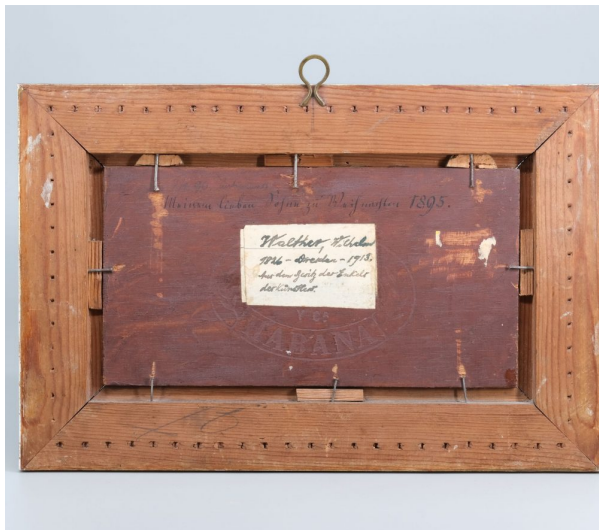 Meinem lieben Sohne zu Weihnachten 1895.
Walther, Wilhelm
1826 – Dresden – 1913.
Aus dem Besitz der Enkelin
des Künstlers.
Y Ca
HABANA